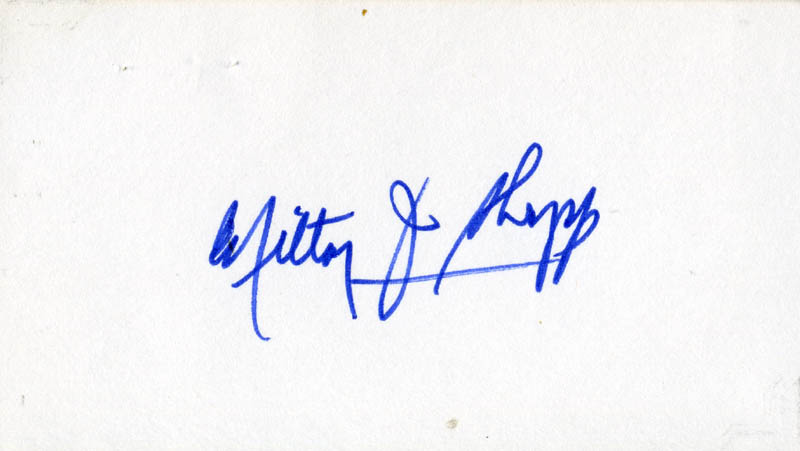 Milton J Shapp